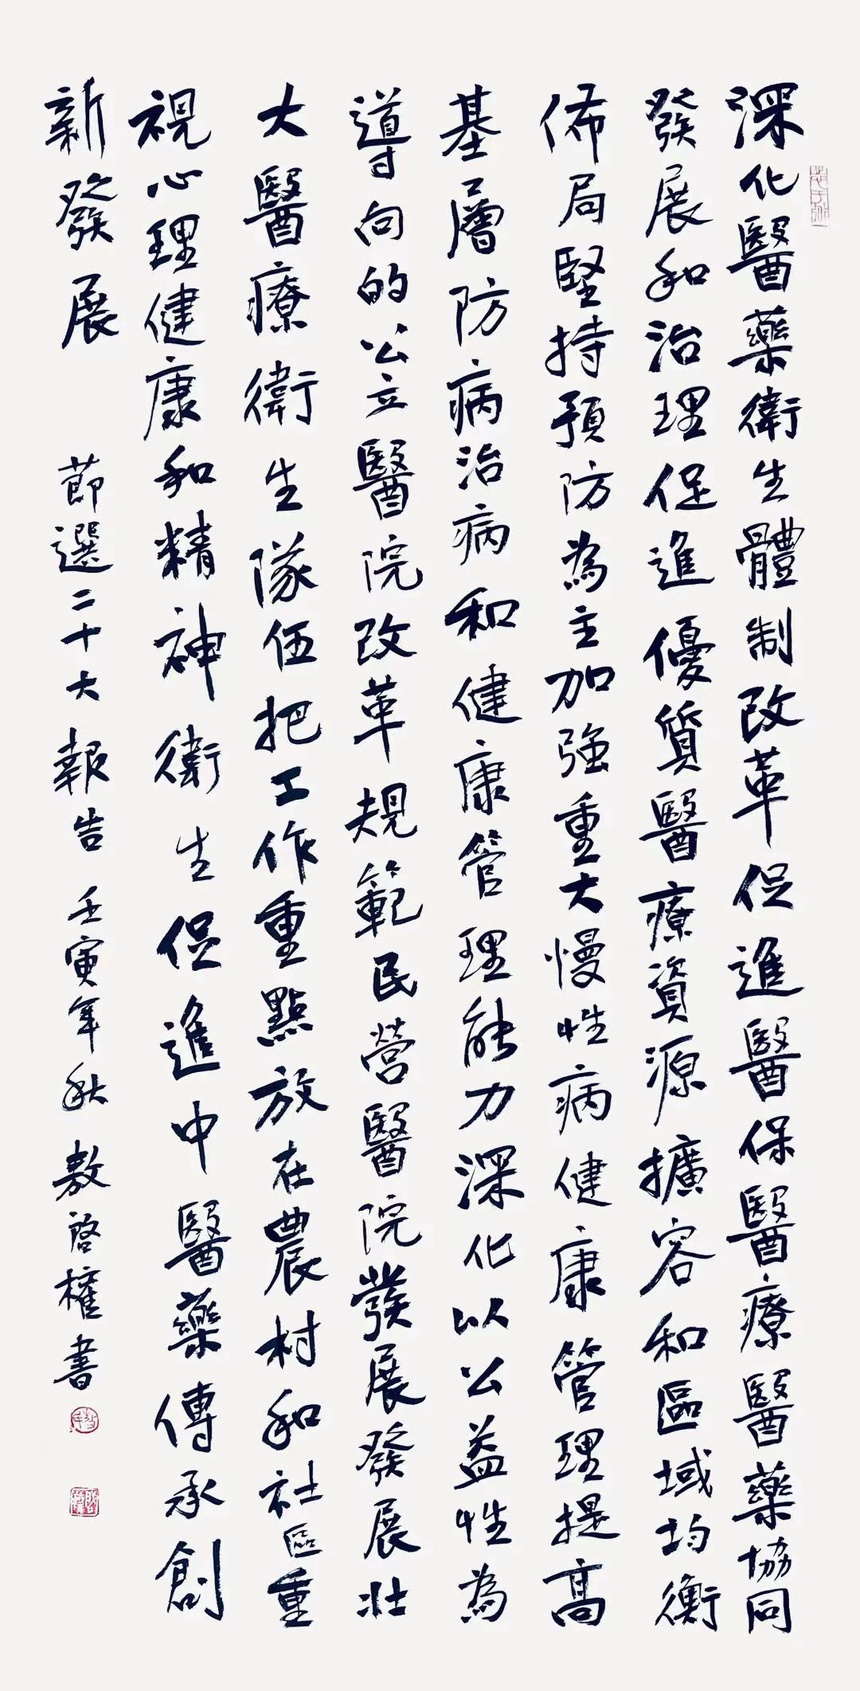 深化醫藥衛生體制改革促進醫保醫療醫藥協同
發展和治理促進優質醫療資源擴容和區域均衡
佈局堅持預防為主加強重大慢性病健康管理提高
基層防病治病和健康管理能力深化以公益性為
導向的公立醫院改革規範民營醫院發展發展壯
大醫療衛生隊伍把工作重點放在農村和社區重
視心理健康和精神衛生促進中醫藥傳承創
新發展
節選二十大報告 壬寅年秋 敖啓權書